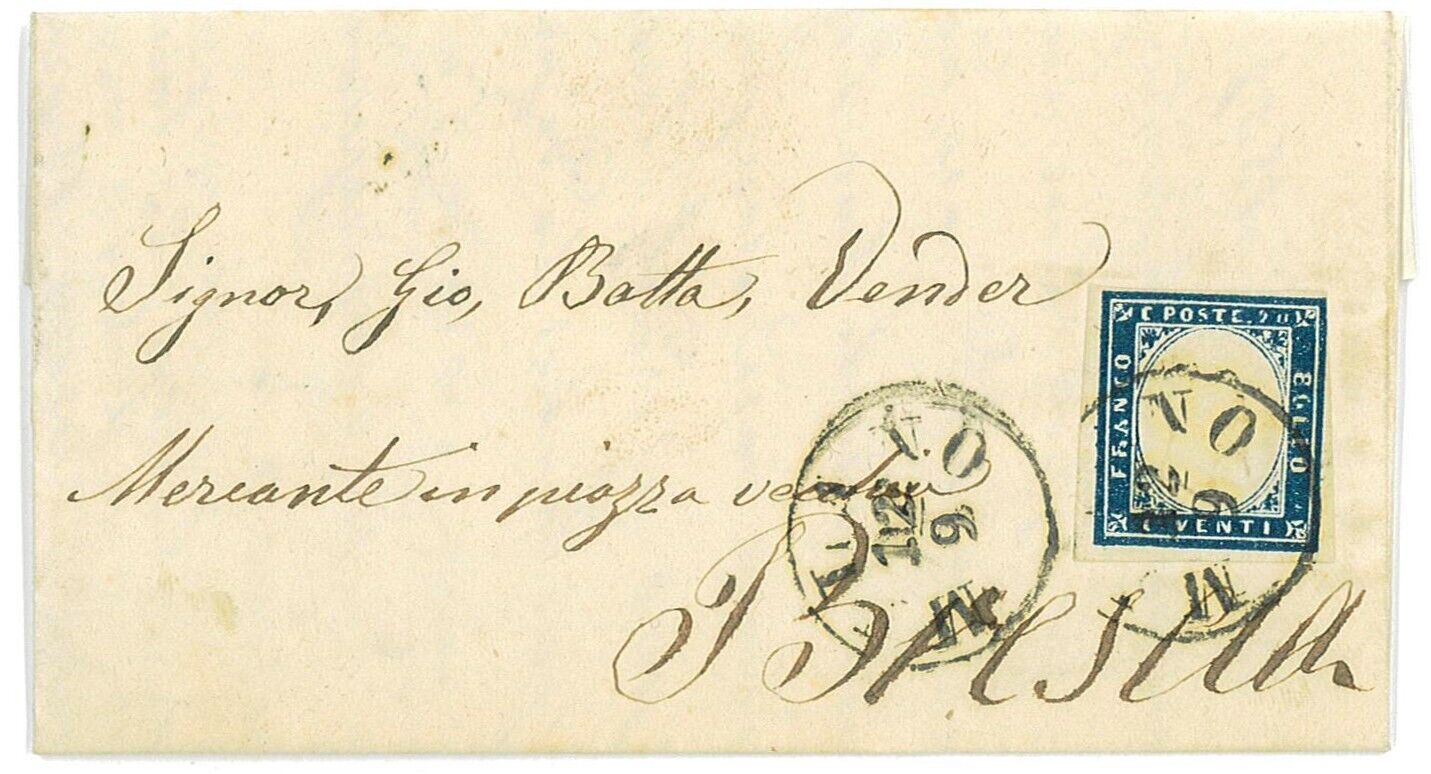 Signor, Gio, Batta, Vender
Mercante in piazza vecchia
Brescia
C POSTE. 20
FRANCO
BOLLO
C VENTI
12
9
M
VO
12
9
M